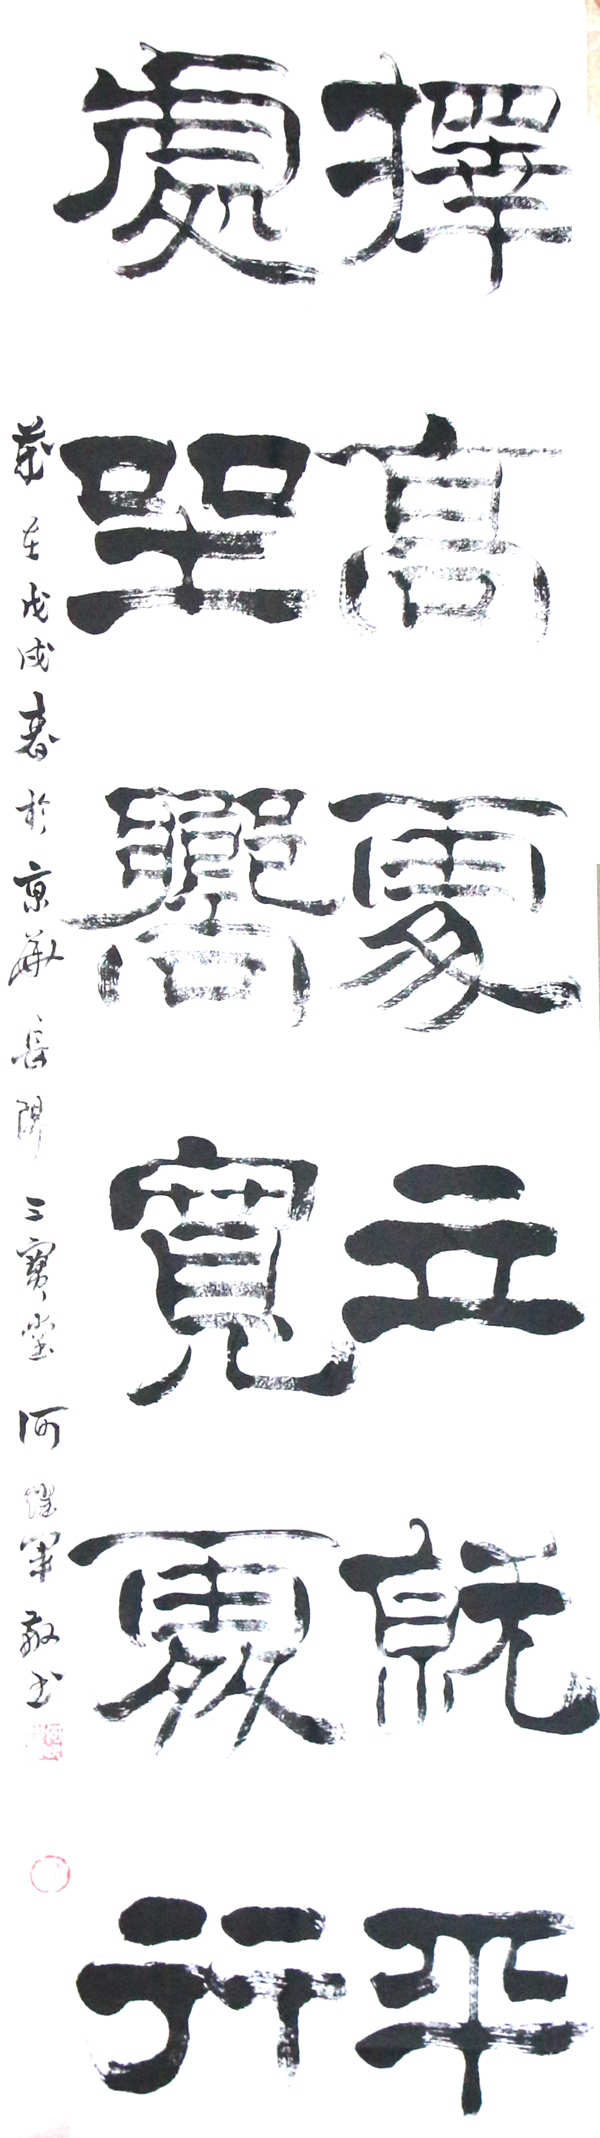 擇高處立就平
處坐嚮寬處行
歲在戊戌春於京華岳陽三寶堂何繼軍敬書